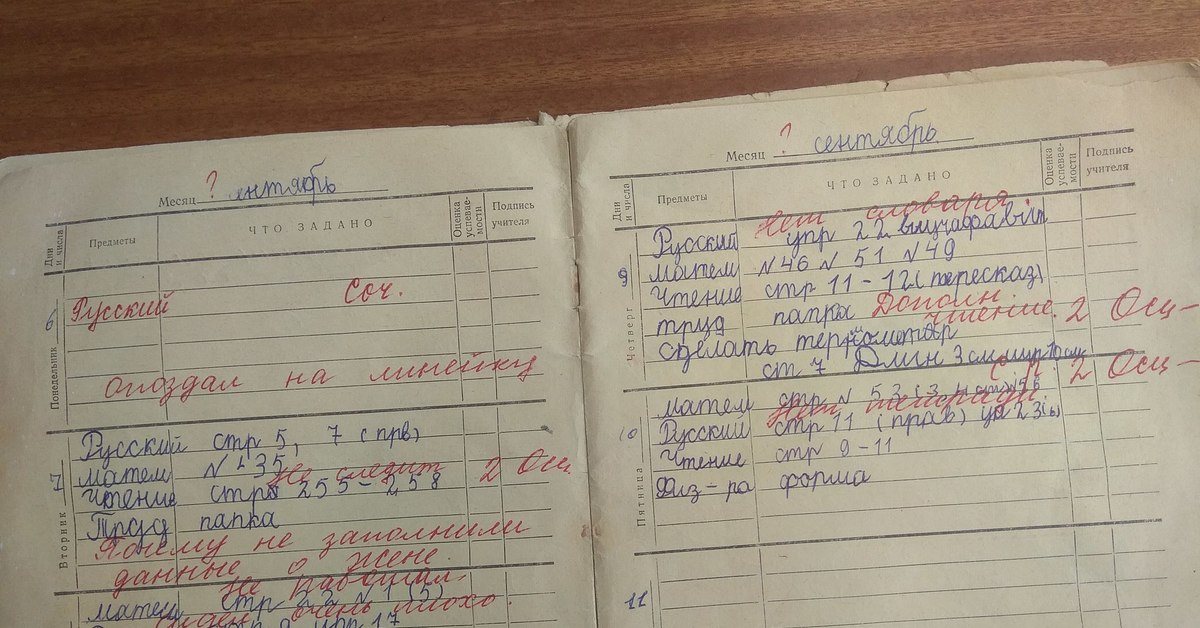 ? ентябрь
Месяц
Дни и числа
Предметы
ЧТО ЗАДАНО
Оценка успевае-мости
Подпись учителя
Понедельник
6
Русский Соч.
опоздал на линейку
Вторник
7
Русский стр 5, 7 (прв)
матем N 135
Не следит
2 Осц
Чтение стр 255-258
Труд папка
Почему не заполнили
данные о жене.
Не работал.
матем стр 22 N 1 (5)
очень плохо.
упр 17
? сентябрь
Месяц
Дни и числа
Предметы
ЧТО ЗАДАНО
Оценка успевае-мости
Подпись учителя
Нет словаря
Четверг
9
Русский упр 22
матем N 46 N 51 N 49
Чтение стр 11-12 (пересказ)
труд папка Дополн.
чтение. 2 Осц-
сделать термометр
ст 7 Длин 3 см шир 10 см
Пятница
10
матем стр N
2 Осц-
Нет тетради.
Русский стр 11 (прав) уп 23
Чтение стр 9-11
Физ-ра форма
11